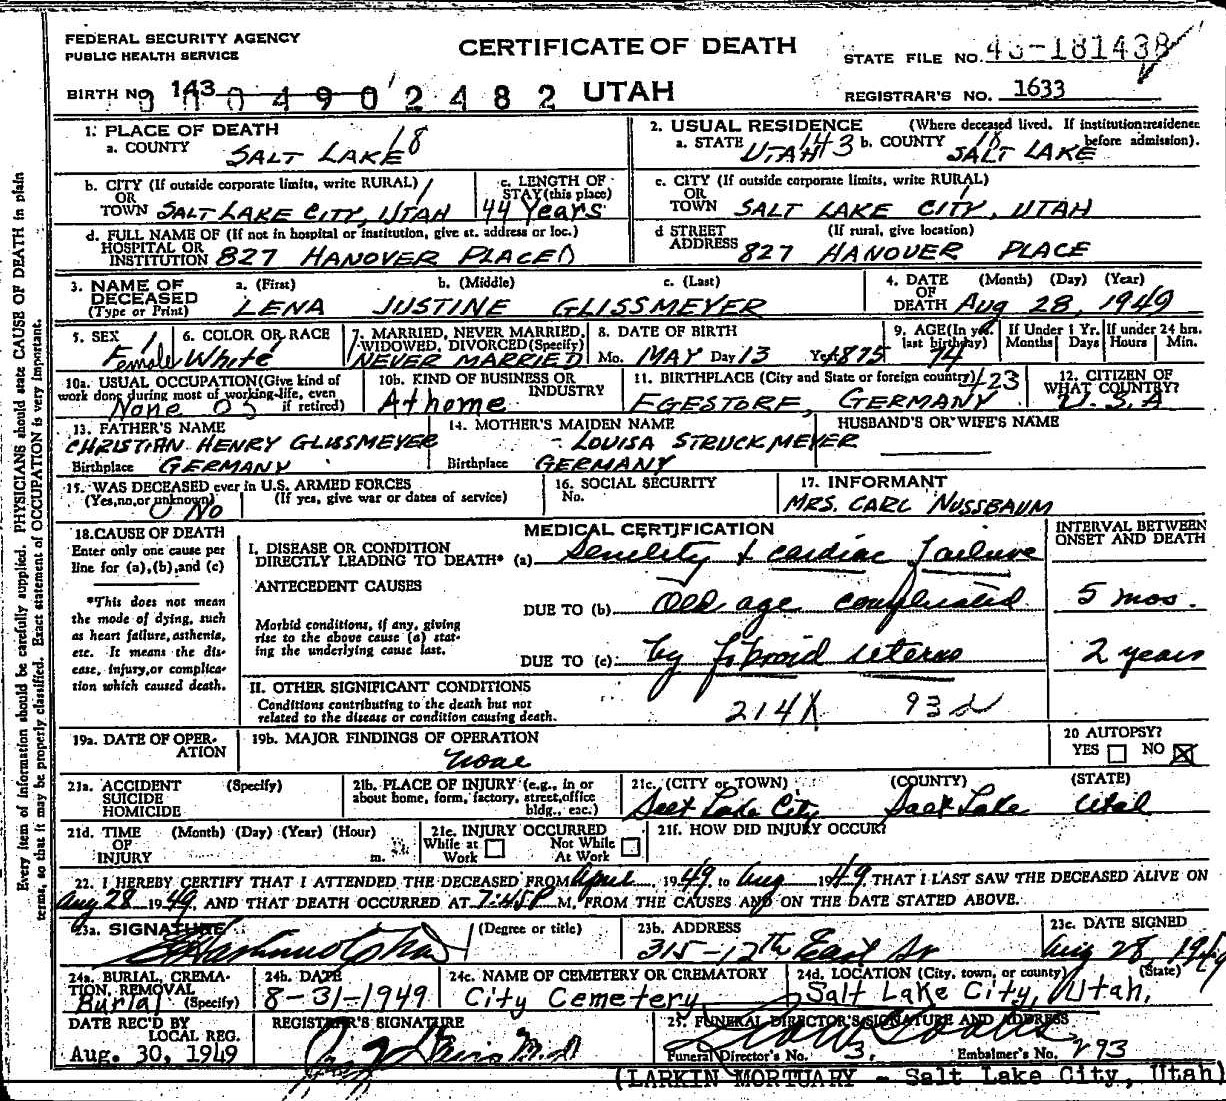 FEDERAL SECURITY AGENCY
PUBLIC HEALTH SERVICE
CERTIFICATE OF DEATH
STATE FILE NO. 181438
BIRTH NO. 143 0 0 0 4 9 0 2 4 8 2 UTAH
REGISTRAR'S NO. 1633
1. PLACE OF DEATH
a. COUNTY SALT LAKE 18
2. USUAL RESIDENCE (Where deceased lived. If institution:residence before admission).
a. STATE UTAH 143 b. COUNTY 18 SALT LAKE
b. CITY (If outside corporate limits, write RURAL)
OR
TOWN SALT LAKE CITY, UTAH
c. LENGTH OF STAY (this place) 44 Years
c. CITY (If outside corporate limits, write RURAL)
OR
TOWN SALT LAKE CITY, UTAH
d. FULL NAME OF (If not in hospital or institution, give st. address or loc.)
HOSPITAL OR
INSTITUTION 827 HANOVER PLACE
d STREET (If rural, give location)
ADDRESS 827 HANOVER PLACE
3. NAME OF DECEASED (Type or Print)
a. (First) b. (Middle) c. (Last)
LENA JUSTINE GLISSMEYER
4. DATE OF DEATH (Month) (Day) (Year)
Aug 28, 1949
5. SEX Female
6. COLOR OR RACE White
7. MARRIED, NEVER MARRIED, WIDOWED, DIVORCED(Specify)
NEVER MARRIED
8. DATE OF BIRTH
Mo. MAY Day 13 Year 1875
9. AGE(In yrs. last birthday) 74
If Under 1 Yr. Months Days
If under 24 hrs. Hours Min.
10a. USUAL OCCUPATION(Give kind of work done during most of working life, even if retired)
None
10b. KIND OF BUSINESS OR INDUSTRY
At home
11. BIRTHPLACE (City and State or foreign country) 423
EGESTORF, GERMANY
12. CITIZEN OF WHAT COUNTRY?
U.S.A
13. FATHER'S NAME
CHRISTIAN HENRY GLISSMEYER
Birthplace GERMANY
14. MOTHER'S MAIDEN NAME
LOUISA STRUCKMEYER
Birthplace GERMANY
HUSBAND'S OR WIFE'S NAME
15. WAS DECEASED ever in U.S. ARMED FORCES
(Yes,no,or unknown) (If yes, give war or dates of service)
No
16. SOCIAL SECURITY
No.
17. INFORMANT
MRS. CARL NUSSBAUM
18. CAUSE OF DEATH
Enter only one cause per line for (a),(b),and (c)
*This does not mean the mode of dying, such as heart failure,asthenia, etc. It means the disease, injury,or complication which caused death.
MEDICAL CERTIFICATION
INTERVAL BETWEEN ONSET AND DEATH
I. DISEASE OR CONDITION
DIRECTLY LEADING TO DEATH* (a) Senility & cardiac failure
ANTECEDENT CAUSES
DUE TO (b) Old age complicated 5 mos.
Morbid conditions, if any, giving rise to the above cause (a) stating the underlying cause last.
DUE TO (c) by fibroid uterus 2 years
II. OTHER SIGNIFICANT CONDITIONS
Conditions contributing to the death but not related to the disease or condition causing death.
214X 93d
19a. DATE OF OPERATION
19b. MAJOR FINDINGS OF OPERATION
None
20 AUTOPSY?
YES NO X
21a. ACCIDENT SUICIDE HOMICIDE (Specify)
21b. PLACE OF INJURY (e.g., in or about home, form, factory, street,office bldg., etc.)
21c. (CITY or TOWN) (COUNTY) (STATE)
Salt Lake City Salt Lake Utah
21d. TIME OF INJURY (Month) (Day) (Year) (Hour) m.
21e. INJURY OCCURRED
While at Work Not While At Work
21f. HOW DID INJURY OCCUR?
22. I HEREBY CERTIFY THAT I ATTENDED THE DECEASED FROM April 1949 to Aug 1949 THAT I LAST SAW THE DECEASED ALIVE ON
Aug 28 1949 AND THAT DEATH OCCURRED AT 7:45 P M, FROM THE CAUSES AND ON THE DATE STATED ABOVE.
23a. SIGNATURE (Degree or title)
23b. ADDRESS
315-12th East St
23c. DATE SIGNED
Aug 28, 1949
24a. BURIAL, CREMATION, REMOVAL (Specify)
Burial
24b. DATE
8-31-1949
24c. NAME OF CEMETERY OR CREMATORY
City Cemetery
24d. LOCATION (City, town, or county) (State)
Salt Lake City, Utah,
DATE REC'D BY LOCAL REG.
Aug. 30, 1949
REGISTRAR'S SIGNATURE
25. FUNERAL DIRECTOR'S SIGNATURE AND ADDRESS
Funeral Director's No. 3. Embalmer's No. 293
(LARKIN MORTUARY - Salt Lake City, Utah)
Every item of information should be carefully supplied. PHYSICIANS should state CAUSE OF DEATH in plain
terms, so that it may be properly classified. Exact statement of OCCUPATION is very important.